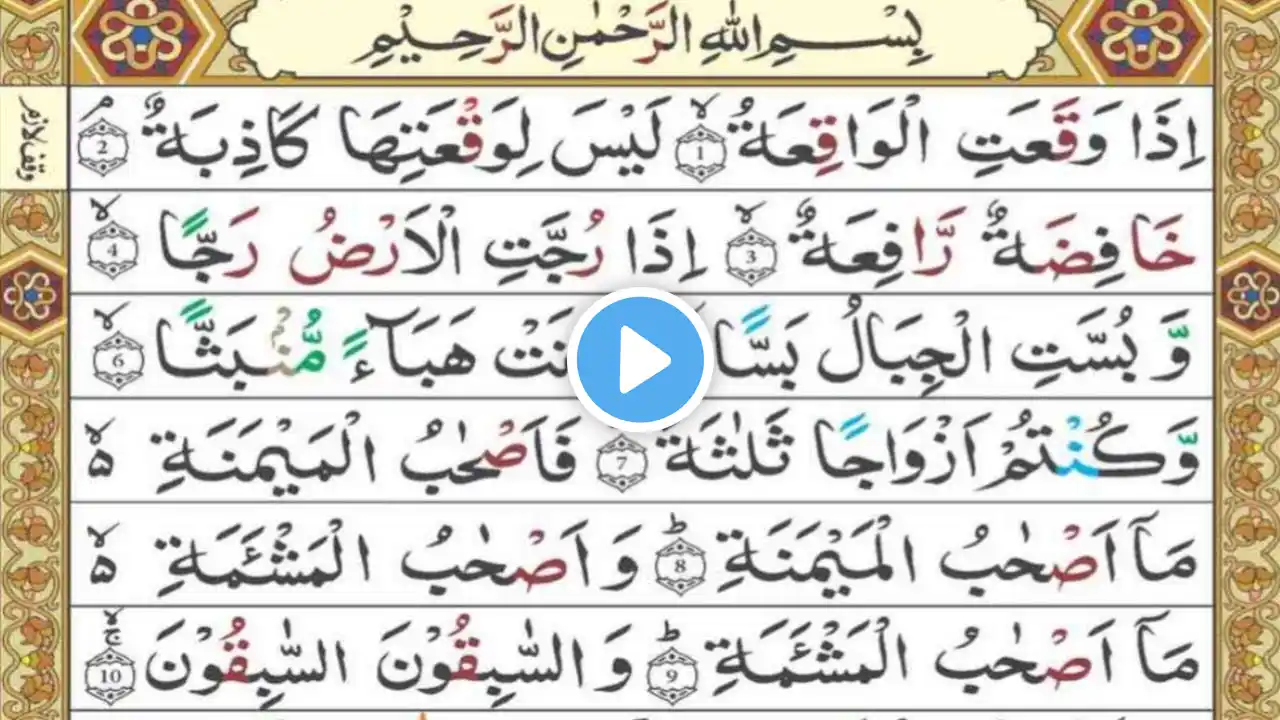 بِسْمِ اللّٰهِ الرَّحْمٰنِ الرَّحِيْمِ
اِذَا وَقَعَتِ الْوَاقِعَةُ ۙ 1 لَيْسَ لِوَقْعَتِهَا كَاذِبَةٌ ۘ 2
وقف لازم
خَافِضَةٌ رَّافِعَةٌ ۙ 3 اِذَا رُجَّتِ الْاَرْضُ رَجًّا ۙ 4
وَّ بُسَّتِ الْجِبَالُ بَسًّا نَتْ هَبَآءً مُّنْۢبَثًّا ۙ 6
وَّكُنْتُمْ اَزْوَاجًا ثَلٰثَةً 7 فَاَصْحٰبُ الْمَيْمَنَةِ ۙ۵
مَاۤ اَصْحٰبُ الْمَيْمَنَةِ ؕ 8 وَ اَصْحٰبُ الْمَشْـَٔمَةِ ۙ۵
مَاۤ اَصْحٰبُ الْمَشْـَٔمَةِ ؕ 9 وَ السّٰبِقُوْنَ السّٰبِقُوْنَ ۚۙ 10